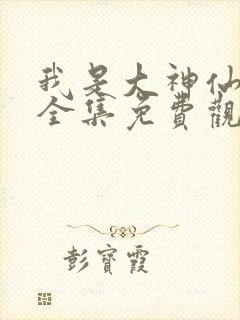 我是大神仙
全集免費觀
彭寶霞